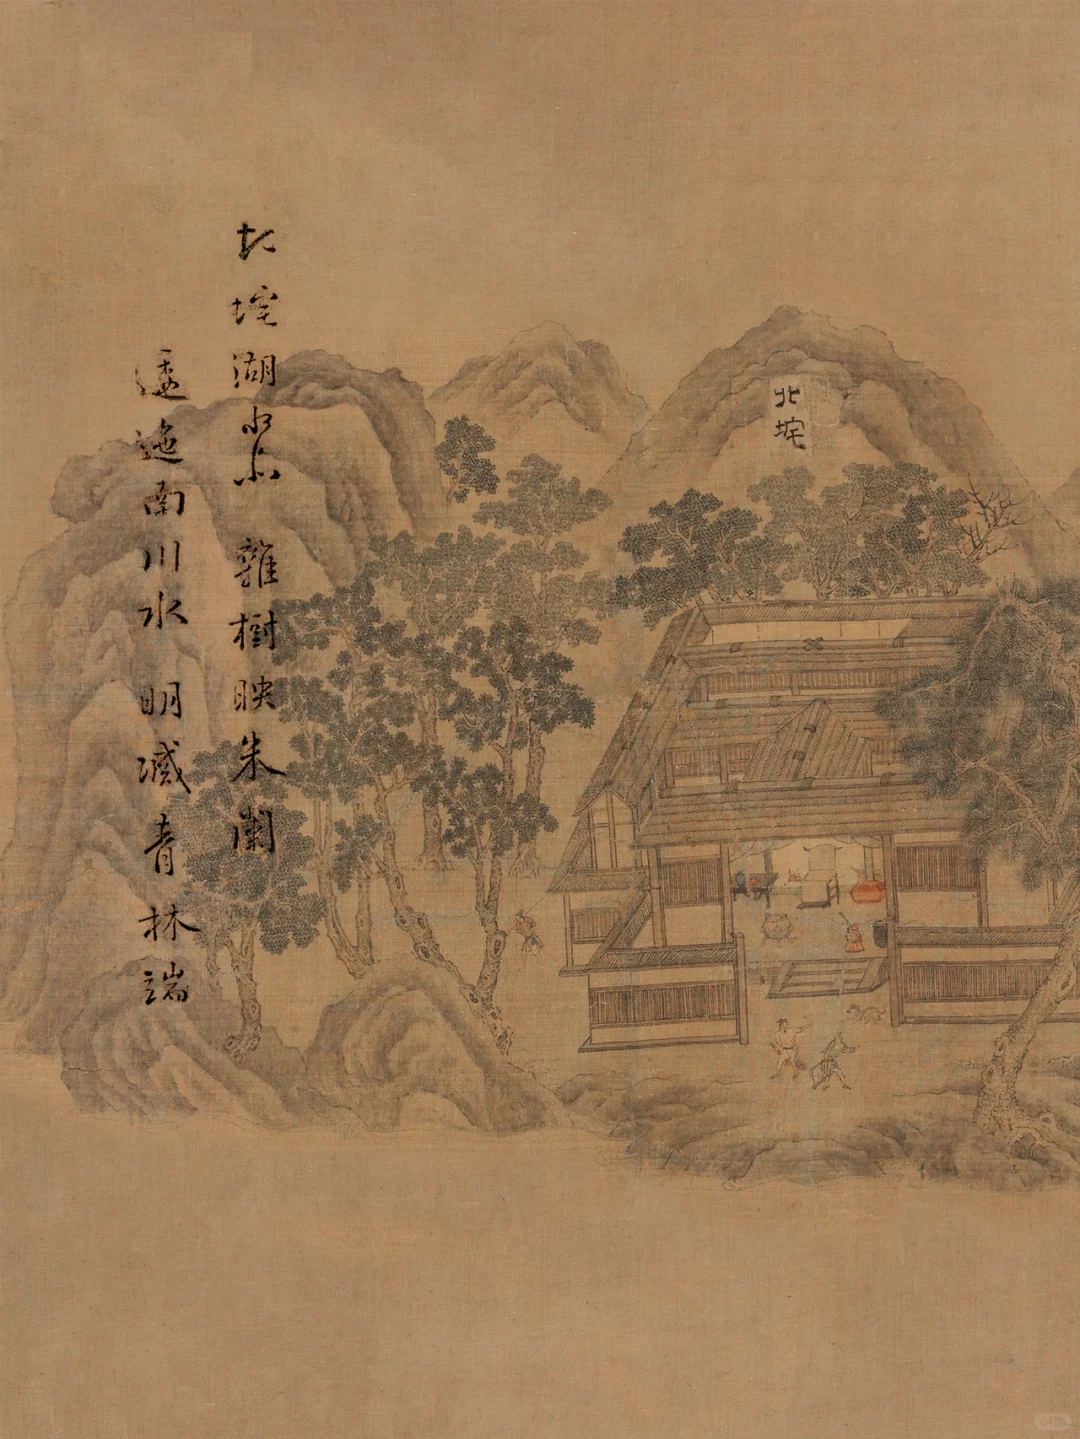 北垞
北垞湖水北 雜樹映朱闌
逶迤南川水 明滅青林端